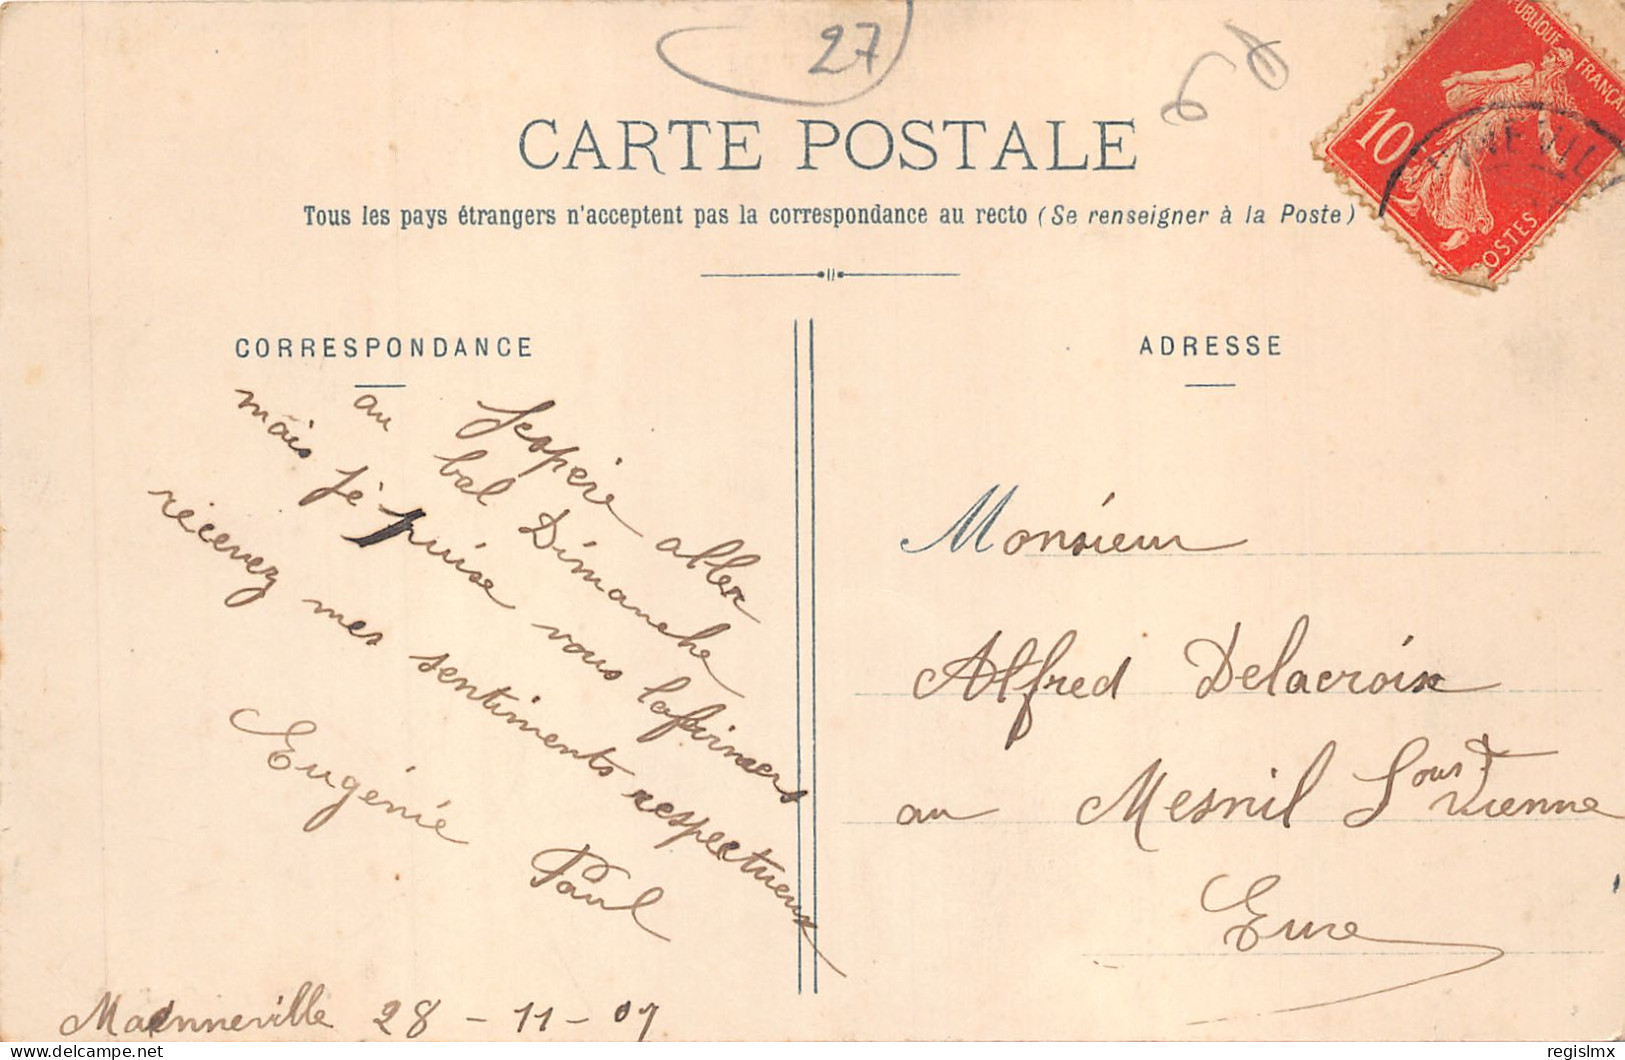 27
CARTE POSTALE
Tous les pays étrangers n'acceptent pas la correspondance au recto (Se renseigner à la Poste)
RÉPUBLIQUE FRANÇAISE
10
POSTES
CORRESPONDANCE
J'espère aller
au bal Dimanche
mais je puise vous lafairmers
recevez mes sentiments respectueux
Eugénie Paul
Mainneville 28 - 11 - 07
ADRESSE
Monsieur
Alfred Delacroix
au Mesnil Sous Vienne
Eure
regislmx